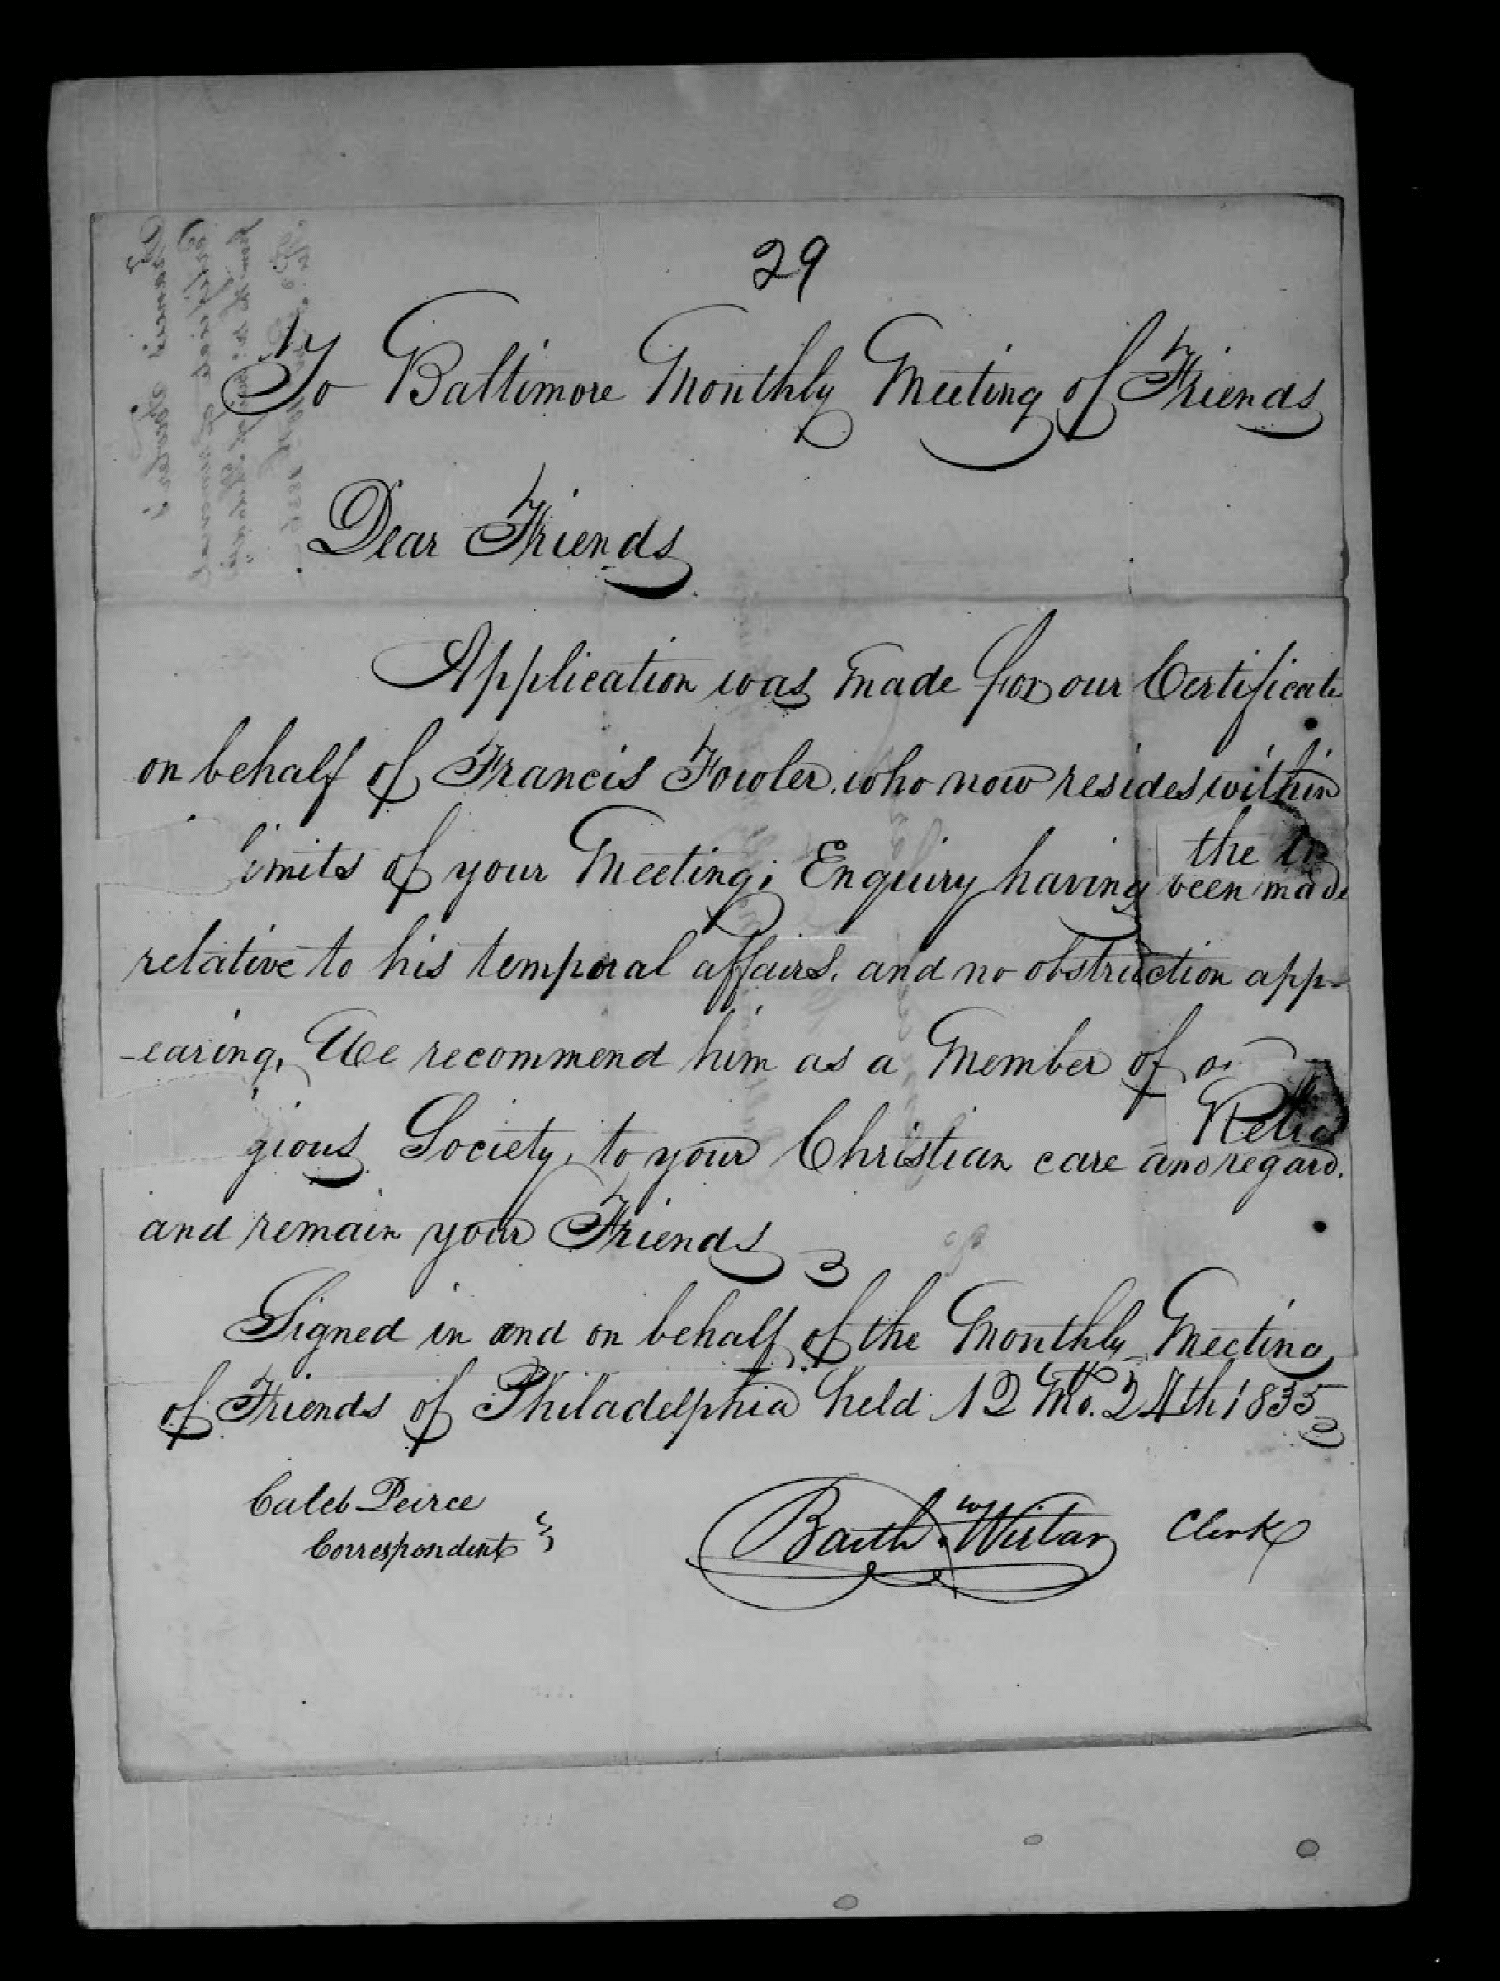 29
To Baltimore Monthly Meeting of Friends
Dear Friends
Application was made for our Certificate
on behalf of Francis Fowler, who now resides within
the
limits of your Meeting; Enquiry having been made
relative to his temporal affairs, and no obstruction app-
-earing, We recommend him as a Member of
Relig
gious Society, to your Christian care and regard.
and remain your Friends
Signed in and on behalf of the Monthly Meeting
of Friends of Philadelphia held 12 Mo. 24th 1835
Caleb Peirce
Correspondent
Barth. Wistar Clerk